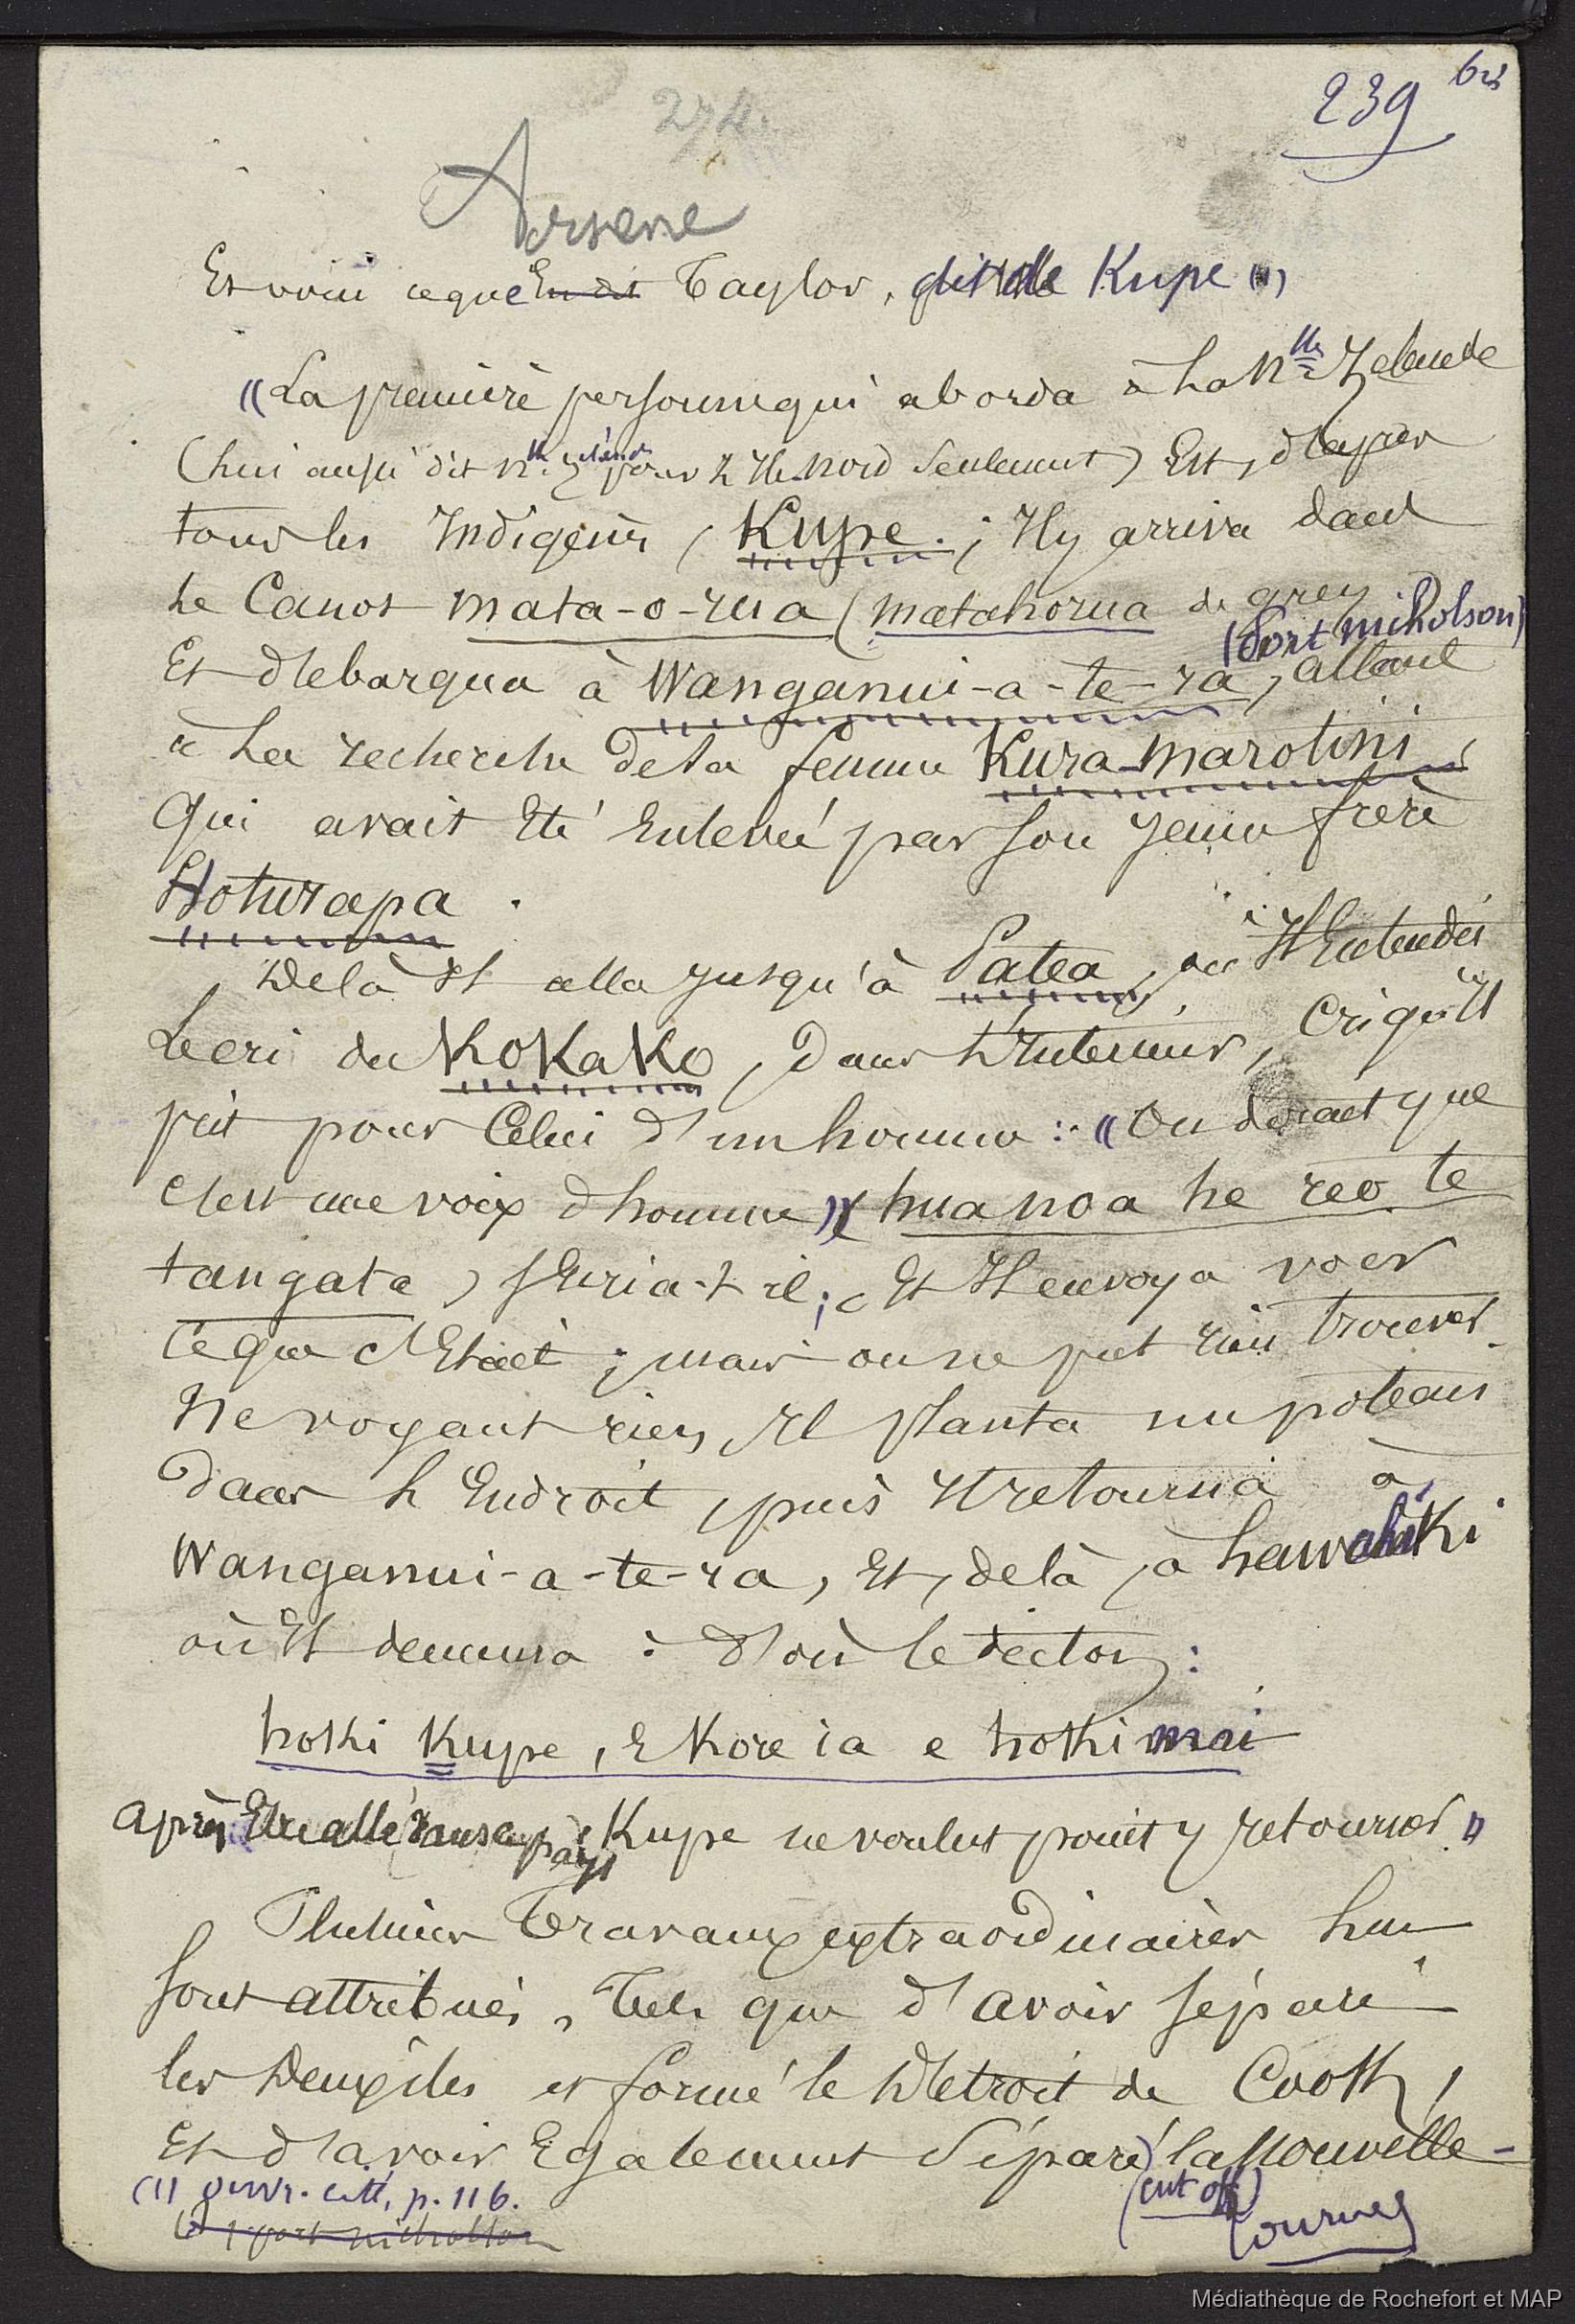 239 bis
274.
Arsene
Et voici ce que ~~En dit~~ Taylor, dit de Kupe (1)
« La première personne qui aborda à La Nlle Zelande
(lui aussi dit Nlle Zélande pour L'Ile nord seulement) Est, d'après
tous les Indigènes, Kupe. ; Il y arriva dans
le Canot mata-o-rua (matahorua de grey
(Port nicholson)
Et débarqua à Wanganui-a-te-ra, allant
à La recherche de sa femme Kura-marotini,
qui avait Eté Enlevée par son jeune frère
Hoturapa.
De là Il alla jusqu'à Patea, où Il Entendit
Le cri du KoKaKo, dans L'Intérieur, cri qu'Il
prit pour Celui d'un homme : « On dirait que
c'est une voix d'homme » (hua noa he reo te
tangata) s'Ecria-t-il ; Et Il envoya voir
ce que c'Etait ; mais on ne put rien trouver.
Ne voyant rien, Il planta un poteau
dans L'Endroit, puis Il retourna à
Wanganui-a-te-ra, Et, de là, à hawahiKi
où Il demeura : D'où le dicton :
hoKi Kupe, E Kore ia e hoKi mai
après Etre allé dans ce pays, Kupe ne voulut point y retourner. »
Plusieurs Travaux extraordinaires lui
sont attribués, Tels que d'avoir séparé
les Deux îles et formé le Détroit de CooK,
Et d'avoir Egalement Séparé la Nouvelle-
(cut off)
(1) ouvr. cité, p. 116.
~~port nicholson~~
tournez
Médiathèque de Rochefort et MAP